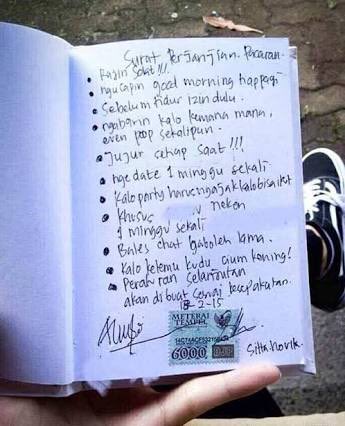 Surat Perjanjian. Pacaran.
• Rajin Solat!!!
• ngucapin good morning happegi
• Sebelum tidur izin dulu.
• ngabarin kalo kemana mana,
even poop sekalipun.
• Jujur setiap saat!!!
• nge date 1 minggu sekali
• kalo party harus ngajak kalo bisa ikut
• khusus nekon
1 minggu sekali
• Bales chat gaboleh lama.
• kalo ketemu kudu cium kening!
• Peraturan selanjutnya
akan dibuat sesuai kesepakatan.
2-15
METERAI
TEMPEL
6000
Sitta